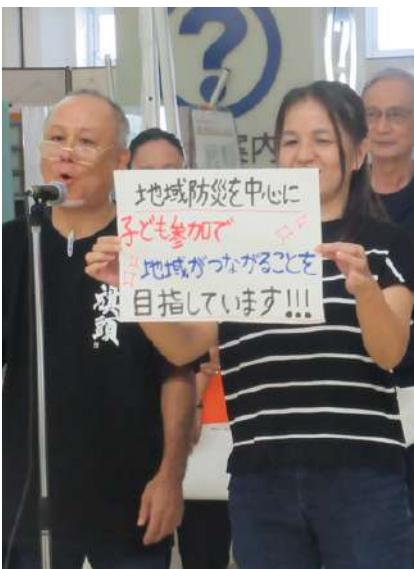 ?
案内
地域防災を中心に
子ども参加で
地域がつながることを
目指しています!!!
旗頭